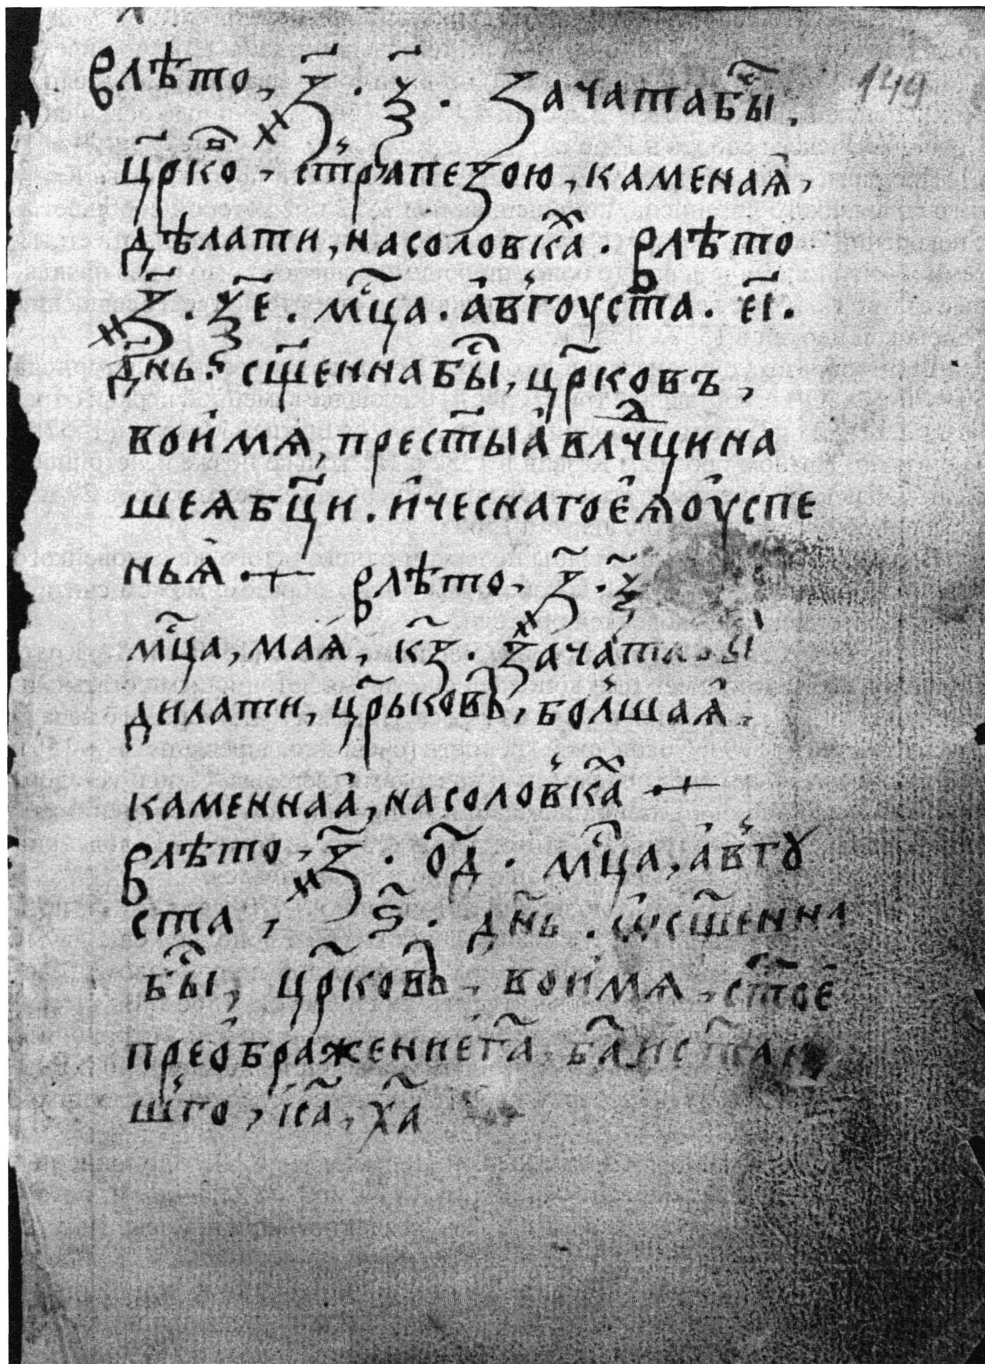 влѣто, ҂з҃. ѯ҃. зачата бы҃, 149
цр҃ко в, ст҃рапезою, каменаꙗ,
дѣлати, на соловкⷯа. влѣто
҂з҃. ѯ҃е. мц҃а. августа. е҃і.
дн҃ь. сщ҃енна бы҃, цр҃ковъ,
воимѧ, прест҃ыа влч҃ци на
шеѧ бц҃и. и ч҃ескаго еѧ оуспе
ньꙗ + влѣто, ҂з҃. ѯ҃
мц҃а, маꙗ, к҃з. зачата бы
дилати, цр҃ьковъ, болшаꙗ,
каменнаа, на соловкⷯа +
влѣто, ҂з҃. о҃д. мц҃а, авгꙋ
ста, ѕ҃. дн҃ь. ѡсщ҃енна
бы҃, цр҃ковъ, воимѧ, ст҃ое
преображение г҃а б҃а и сп҃а на
шго, іс҃а, х҃а